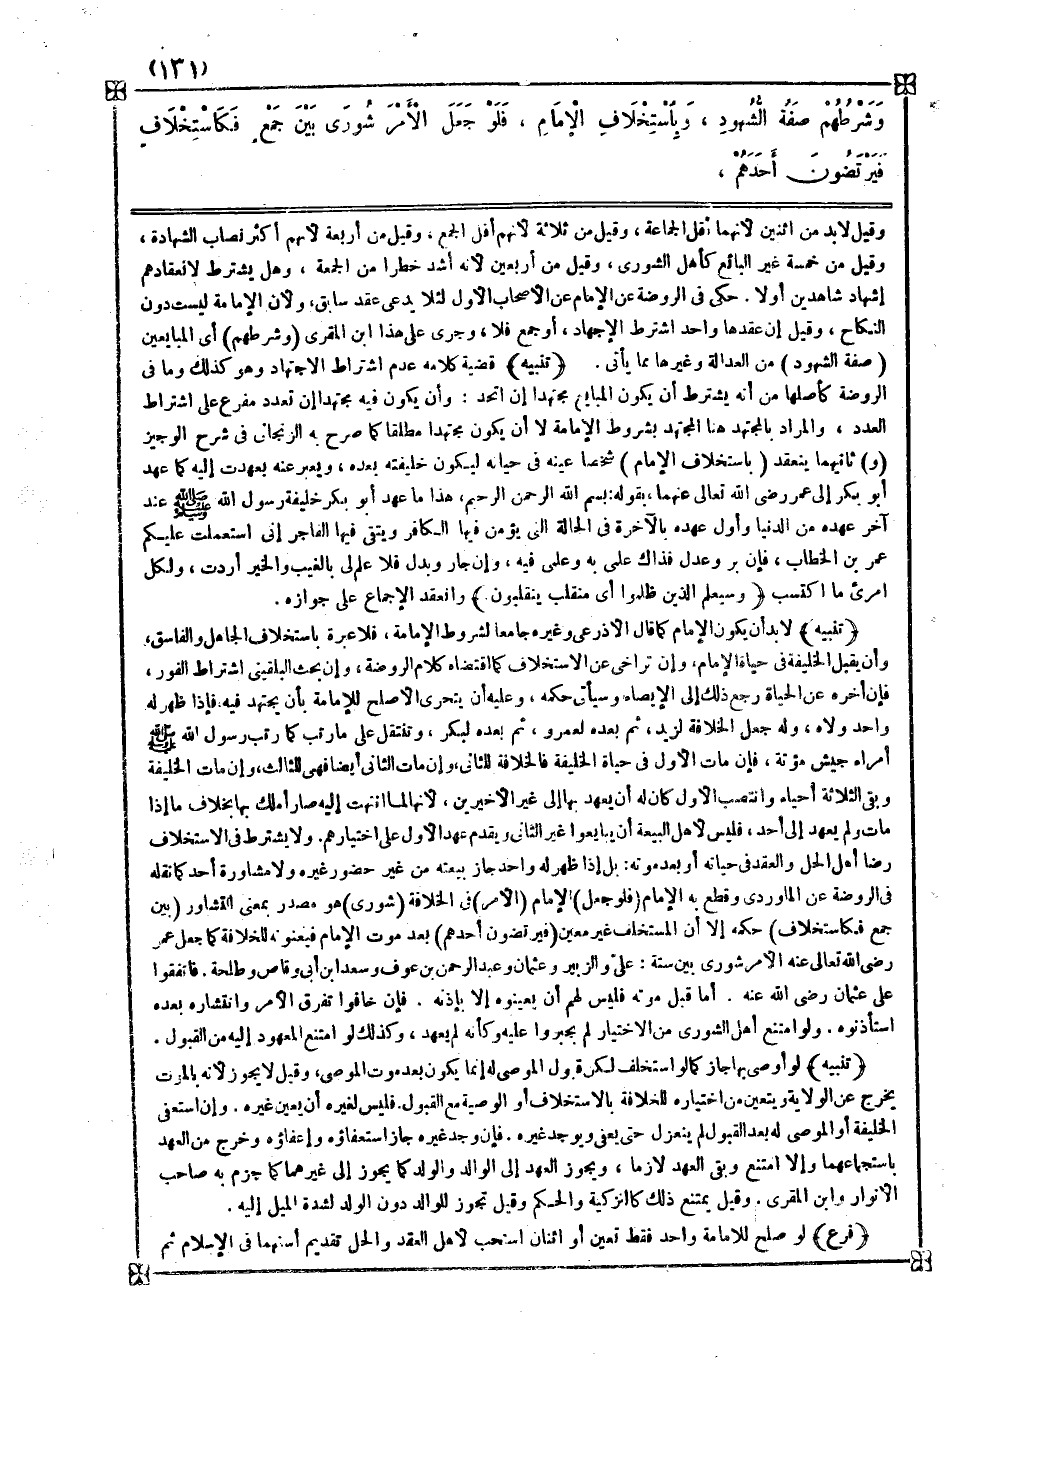 (١٣١)
وَشَرْطُهُمْ صِفَةُ الشُّهُودِ ، وَبِاسْتِخْلَافِ الْإِمَامِ ، فَلَوْ جَعَلَ الْأَمْرَ شُورَى بَيْنَ جَمْعٍ فَكَاسْتِخْلَافٍ
فَيَرْتَضُونَ أَحَدَهُمْ ،
وقيل لابد من اثنين لأنهما أقل الجماعة ، وقيل من ثلاثة لأنهم أقل الجمع ، وقيل من أربعة لأنهم أكثر نصاب الشهادة ،
وقيل من خمسة غير البائع كأهل الشورى ، وقيل من أربعين لأنه أشد خطرا من الجمعة ، وهل يشترط لانعقادهم
إشهاد شاهدين أولا . حكى فى الروضة عن الإمام عن الأصحاب الأول لئلا يدعى عقد سابق، ولأن الإمامة ليست دون
النكاح ، وقيل إن عقدها واحد اشترط الإجهاد ، أوجمع فلا ، وجرى على هذا ابن المقرى (وشرطهم) أى المبايعين
( صفة الشهود ) من العدالة وغيرها مما يأتى . ﴿تنبيه﴾ قضية كلامه عدم اشتراط الاجتهاد وهو كذلك وما فى
الروضة كأصلها من أنه يشترط أن يكون المبايع مجتهدا إن اتحد : وأن يكون فيه مجتهد إن تعدد مفرع على اشتراط
العدد ، والمراد بالمجتهد هنا المجتهد بشروط الإمامة لا أن يكون مجتهدا مطلقا كما صرح به الزنجانى فى شرح الوجيز
(و) ثانيهما ينعقد ( باستخلاف الإمام ) شخصا عينه فى حياته ليكون خليفته بعده ، ويعبر عنه بعهدت إليه كما عهد
أبو بكر إلى عمر رضى الله تعالى عنهما ، بقوله : بسم الله الرحمن الرحيم، هذا ما عهد أبو بكر خليفة رسول الله ﷺ عند
آخر عهده من الدنيا وأول عهده بالآخرة فى الحالة التى يؤمن فيها الكافر ويتقى فيها الفاجر إنى استعملت عليكم
عمر بن الخطاب ، فإن بر وعدل فذاك علمى به وعلمى فيه ، وإن جار وبدل فلا علم لى بالغيب والخير أردت ، ولكل
امرئ ما اكتسب ﴿ وسيعلم الذين ظلموا أى منقلب ينقلبون ﴾ وانعقد الإجماع على جوازه .
﴿تنبيه﴾ لابد أن يكون الإمام كما قال الأذرعى وغيره جامعا لشروط الإمامة ، فلا عبرة باستخلاف الجاهل والفاسق،
وأن يقبل الخليفة فى حياة الإمام، وإن تراخى عن الاستخلاف كما اقتضاه كلام الروضة ، وإن بحث البلقينى اشتراط الفور ،
فإن أخره عن الحياة رجع ذلك إلى الإيصاء، وسيأتى حكمه ، وعليه أن يتحرى الأصلح للإمامة بأن يجتهد فيه، فإذا ظهر له
واحد ولاه ، وله جعل الخلافة لزيد، ثم بعده لعمرو ، ثم بعده لبكر ، وتنتقل على مارتب كما رتب رسول الله ﷺ
أمراء جيش مؤتة ، فإن مات الأول فى حياة الخليفة فالخلافة للثانى، وإن مات الثانى أيضا فهى للثالث، وإن مات الخليفة
وبقى الثلاثة أحياء وانتصب الأول كان له أن يعهد بها إلى غير الأخيرين ، لأنها لما انتهت إليه صار أملك بها بخلاف ما إذا
مات ولم يعهد إلى أحد ، فليس لأهل البيعة أن يبايعوا غير الثانى ويقدم عهد الأول على اختيارهم. ولا يشترط فى الاستخلاف
رضا أهل الحل والعقد فى حياته أو بعد موته : بل إذا ظهر له واحد جاز بيعته من غير حضور غيره ولا مشاورة أحد كما نقله
فى الروضة عن الماوردى وقطع به الإمام (فلو جعل) الإمام (الأمر) فى الخلافة (شورى) هو مصدر بمعنى التشاور (بين
جمع فكاستخلاف) حكمه إلا أن المستخلف غير معين (فيرتضون أحدهم) بعد موت الإمام فيعينونه للخلافة كما جعل عمر
رضى الله تعالى عنه الأمر شورى بين ستة : علىّ والزبير وعثمان وعبدالرحمن بن عوف وسعد ابن أبى وقاص وطلحة . فاتفقوا
على عثمان رضى الله عنه . أما قبل موته فليس لهم أن يعينوه إلا بإذنه . فإن خافوا تفرق الأمر وانتشاره بعده
استأذنوه . ولو امتنع أهل الشورى من الاختيار لم يجبروا عليه وكأنه لم يعهد ، وكذلك لو امتنع المعهود إليه من القبول .
﴿تنبيه﴾ لو أوصى بها جاز كما لو استخلف لكن قبول الموصى له إنما يكون بعد موت الموصى، وقيل لا يجوز لأنه بالموت
يخرج عن الولاية ويتعين من اختياره للخلافة بالاستخلاف أو الوصية مع القبول. فليس لغيره أن يعين غيره . وإن استعفى
الخليفة أو الموصى له بعد القبول لم ينعزل حتى يعفى ويوجد غيره . فإن وجد غيره جاز استعفاؤه وإعفاؤه وخرج من العهد
باستجماعهما وإلا امتنع وبقى العهد لازما ، ويجوز العهد إلى الوالد والولد كما يجوز إلى غيرهما كما جزم به صاحب
الأنوار وابن المقرى . وقيل يمتنع ذلك كالتزكية والحكم وقيل تجوز للوالد دون الولد لشدة الميل إليه .
﴿فرع﴾ لو صلح للإمامة واحد فقط تعين أو اثنان استحب لأهل العقد والحل تقديم أسنهما فى الإسلام ثم